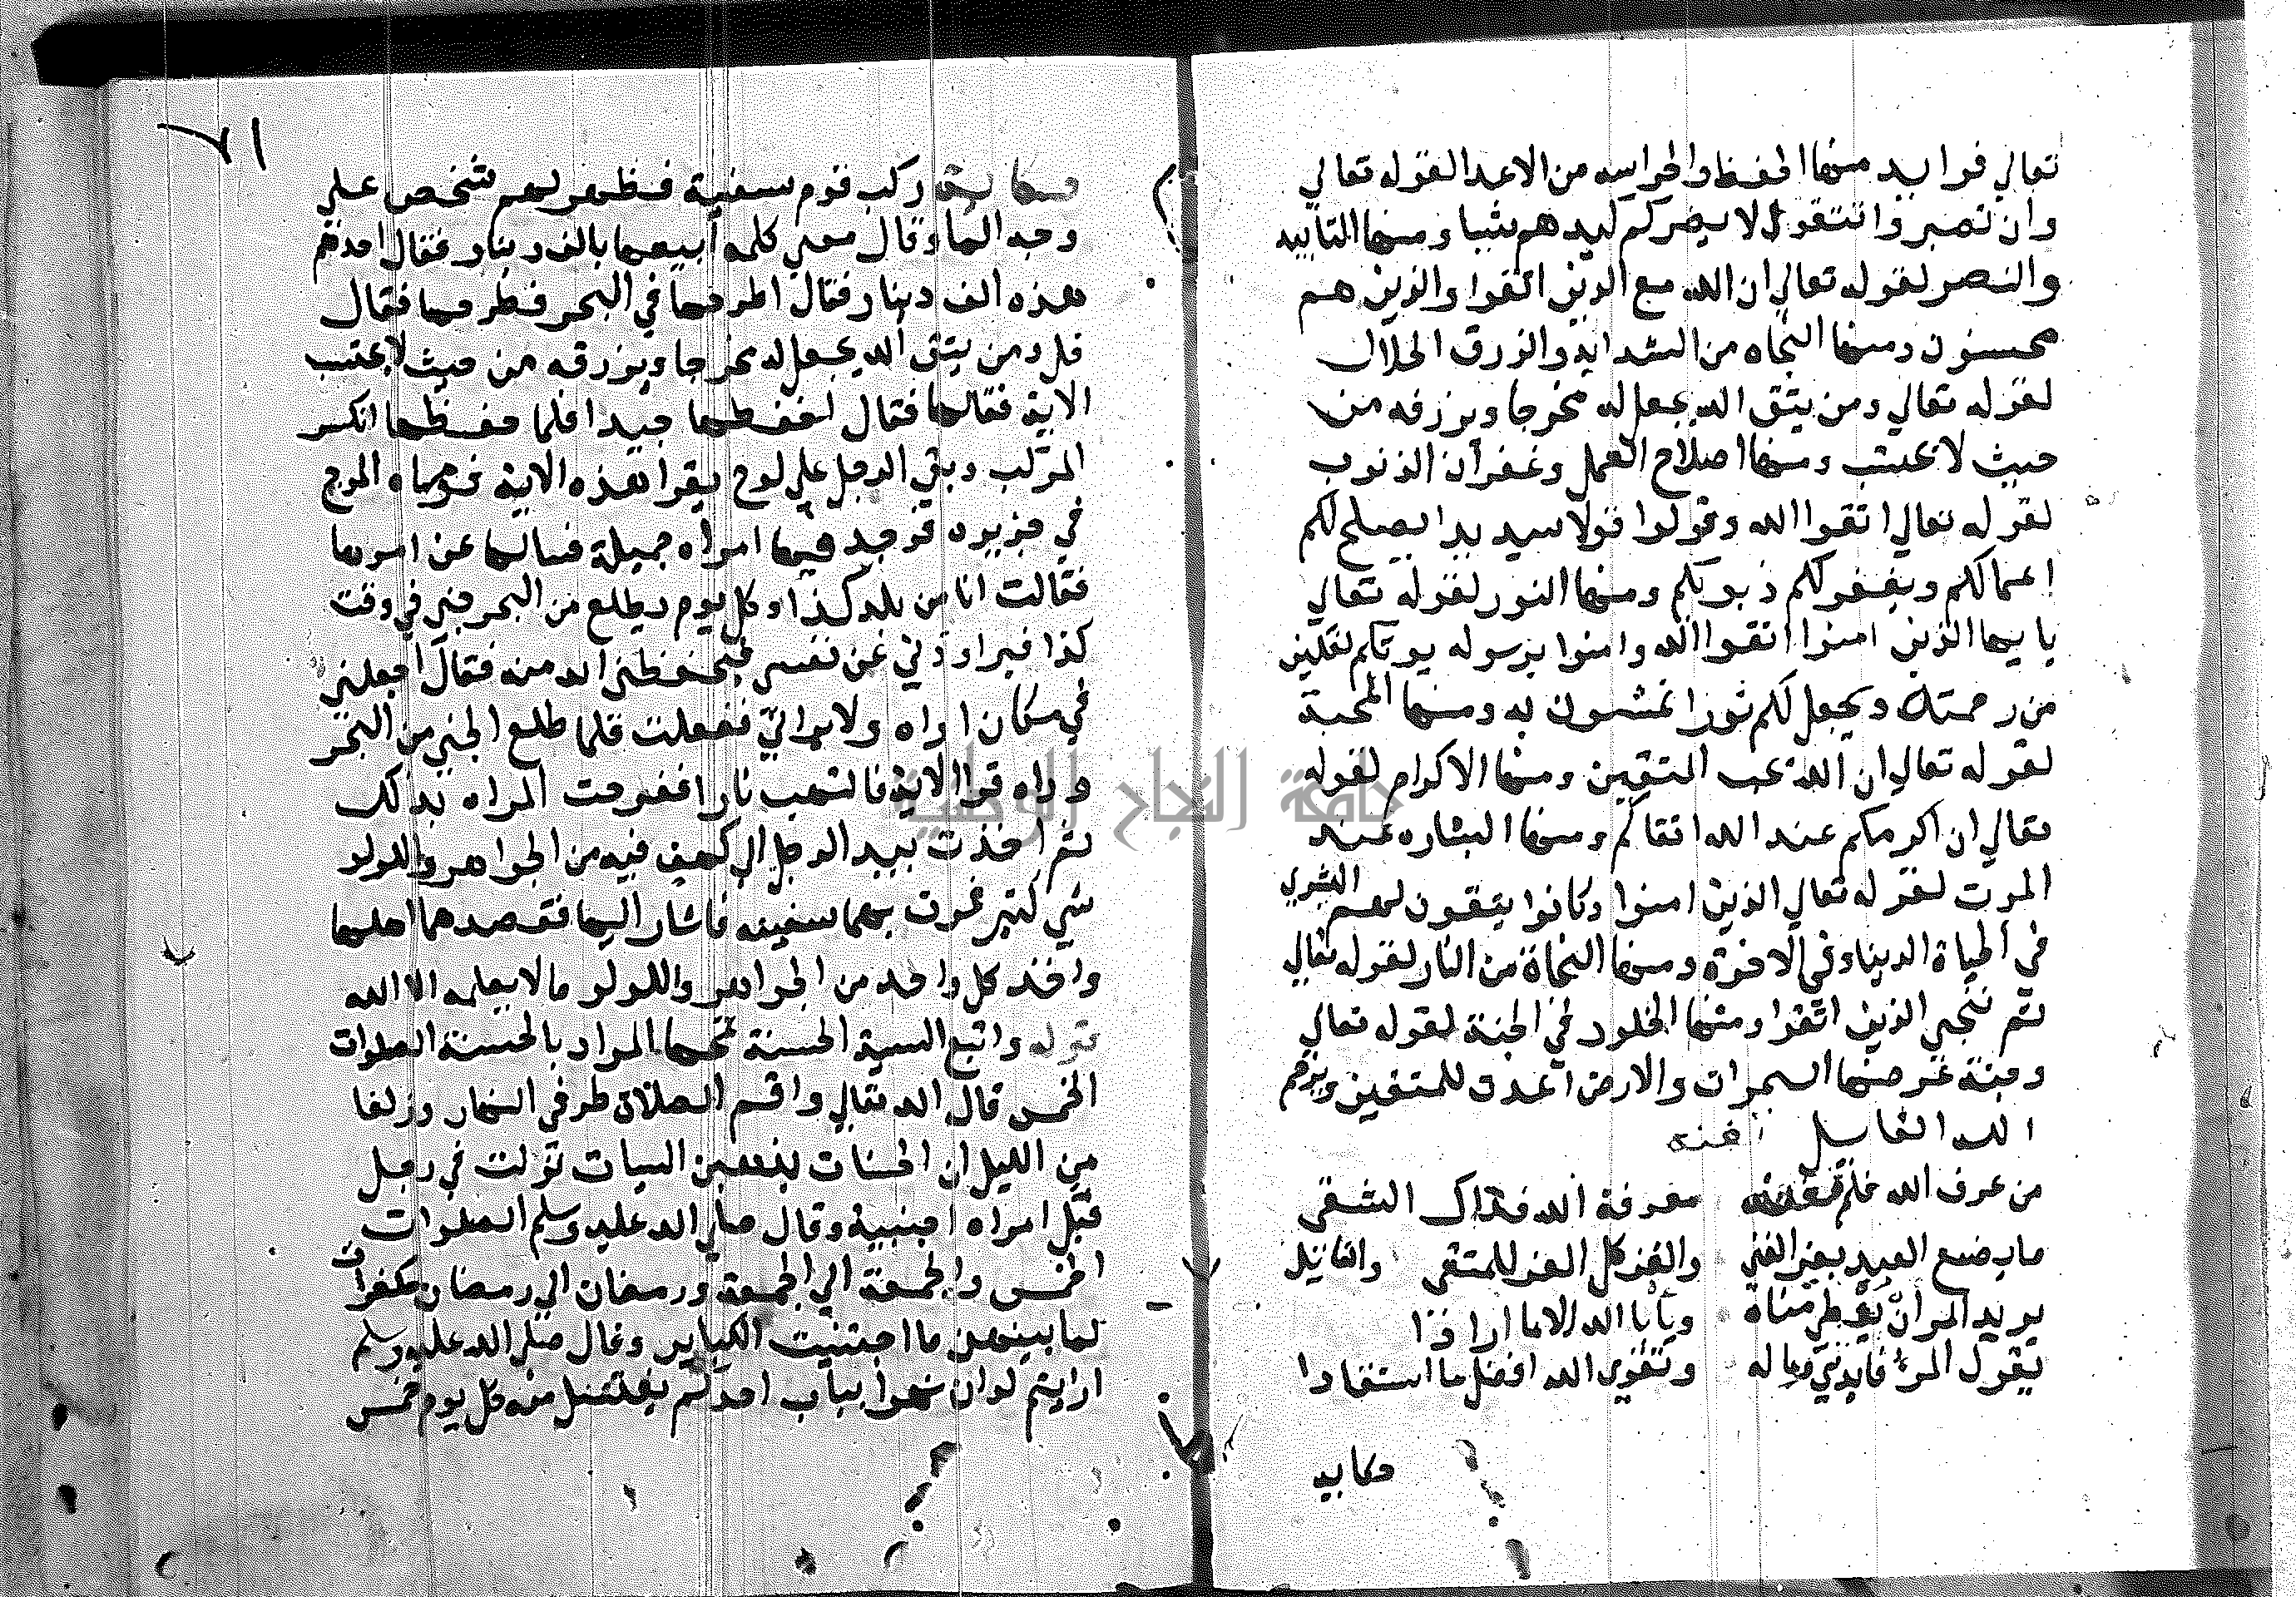 تعالي فوايد منها الحفظ والحراسه من الاعدا لقوله تعالي
وان تصبروا وتتقوا لا يضركم كيدهم شيا ومنها التاييد
والنصر لقوله تعالي ان الله مع الذين اتقوا والذين هم
محسنون ومنها النجاه من الشدايد والرزق الحلال
لقوله تعالي ومن يتق الله يجعل له مخرجا ويرزقه من
حيث لا يحتسب ومنها اصلاح العمل وغفران الذنوب
لقوله تعالي اتقوا الله وقولوا قولا سديدا يصلح لكم
اعمالكم ويغفر لكم ذنوبكم ومنها النور لقوله تعالي
يا يها الذين امنوا اتقوا الله وامنوا برسوله يوتكم كفلين
من رحمته ويجعل لكم نورا تمشون به ومنها المحبة
لقوله تعالي ان الله يحب المتقين ومنها الاكرام لقوله
تعالي ان اكرمكم عند الله اتقاكم ومنها البشاره عند
الموت لقوله تعالي الذين امنوا وكانوا يتقون لهم البشري
في الحياة الدنيا وفي الاخرة ومنها النجاة من النار لقوله تعالي
ثم ننجي الذين اتقوا ومنها الخلود في الجنة لقوله تعالي
وجنة عرضها السموات والارض اعدت للمتقين ويرحم
الله القايل
من عرف الله فلم تغنه معرفة الله فذاك الشقي
ما يصنع العبد بعز الغني والعز كل العز للمتقي والقايل
يريد المر ان يعطي مناه ويابا الله الا ما ارادا
يقول المرء فايدتي ومالي وتقوي الله افضل ما استفادا
حكايه
٧١
ركب قوم سفينة فظهر لهم شخص علي
وجه الما وقال معي كلمه ابيعها بالف دينار فقال احدهم
هذه الف دينار فقال اطرحها في البحر فطرحها فقال
قل ومن يتق الله يجعل له مخرجا ويرزقه من حيث لا يحتسب
الاية فقالها فقال احفظها جيدا فلما حفظها انكسر
المركب وبقي الرجل علي لوح يقرا هذه الاية فرماه الموج
في جزيره فوجد فيها امراه جميلة فسالها عن امرها
فقالت انا من بلد كذا وكل يوم يطلع من البحر جني في وقت
كذا فيراودني عن نفسي فيحفظني الله منه فقال اجعليني
في مكان اراه ولا يراني ففعلت فلما طلع الجني من البحر
وراه قرا الاية فالتهب نارا ففرحت المراه بذلك
ثم اخذت بيد الرجل الي كهف فيه من الجواهر واللولو
شي كثير فمرت بهما سفينه فاشار اليها فقصدهما اهلها
واخذ كل واحد من الجواهر واللولو ما لا يعلمه الا الله
قوله واتبع السيية الحسنة تمحها المراد بالحسنة الصلوات
الخمس قال الله تعالي واقم الصلاة طرفي النهار وزلفا
من الليل ان الحسنات يذهبن السيات نزلت في رجل
قبل امراه اجنبية وقال صلي الله عليه وسلم الصلوات
الخمس والجمعة الي الجمعة ورمضان الي رمضان مكفرات
لما بينهن ما اجتنبت الكباير وقال صلي الله عليه وسلم
ارايتم لو ان نهرا بباب احدكم يغتسل منه كل يوم خمس
جامعة النجاح الوطنية